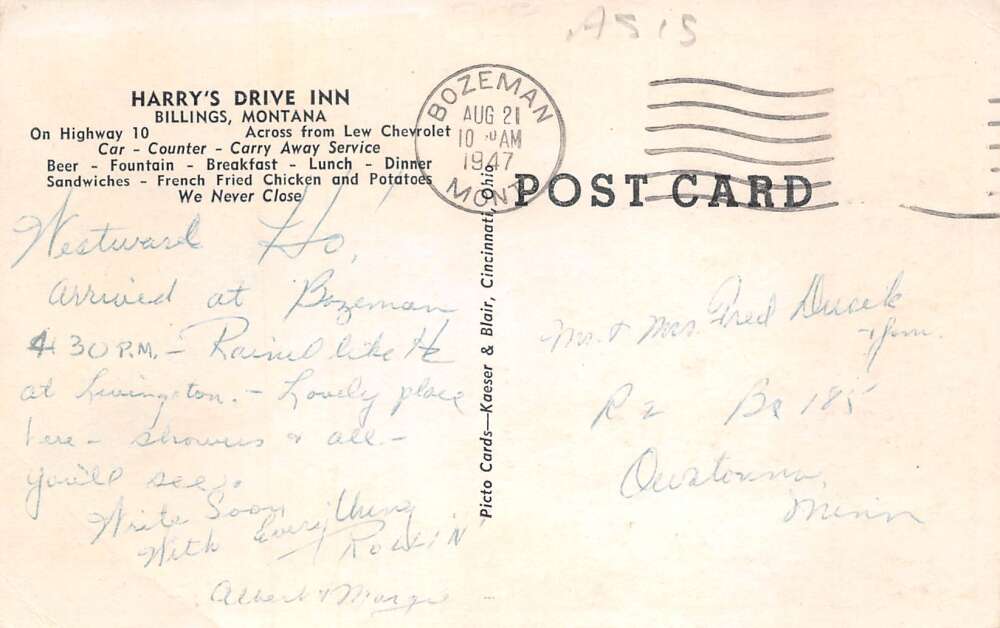 AS IS
HARRY'S DRIVE INN
BILLINGS, MONTANA
On Highway 10 Across from Lew Chevrolet
Car - Counter - Carry Away Service
Beer - Fountain - Breakfast - Lunch - Dinner
Sandwiches - French Fried Chicken and Potatoes
We Never Close
BOZEMAN
AUG 21
10 AM
1947
MONT.
POST CARD
Picto Cards—Kaeser & Blair, Cincinnati, Ohio
Westward Ho,
Arrived at Bozeman
4 30 P.M. - Rained like He
at Livingston. - Lovely place
here - showers & all -
you'll see.
Write Soon
With Everything
Rollin'
Albert & Margie
Mr. & Mrs. Fred
R 2 Bx 185
Owatonna,
Minn